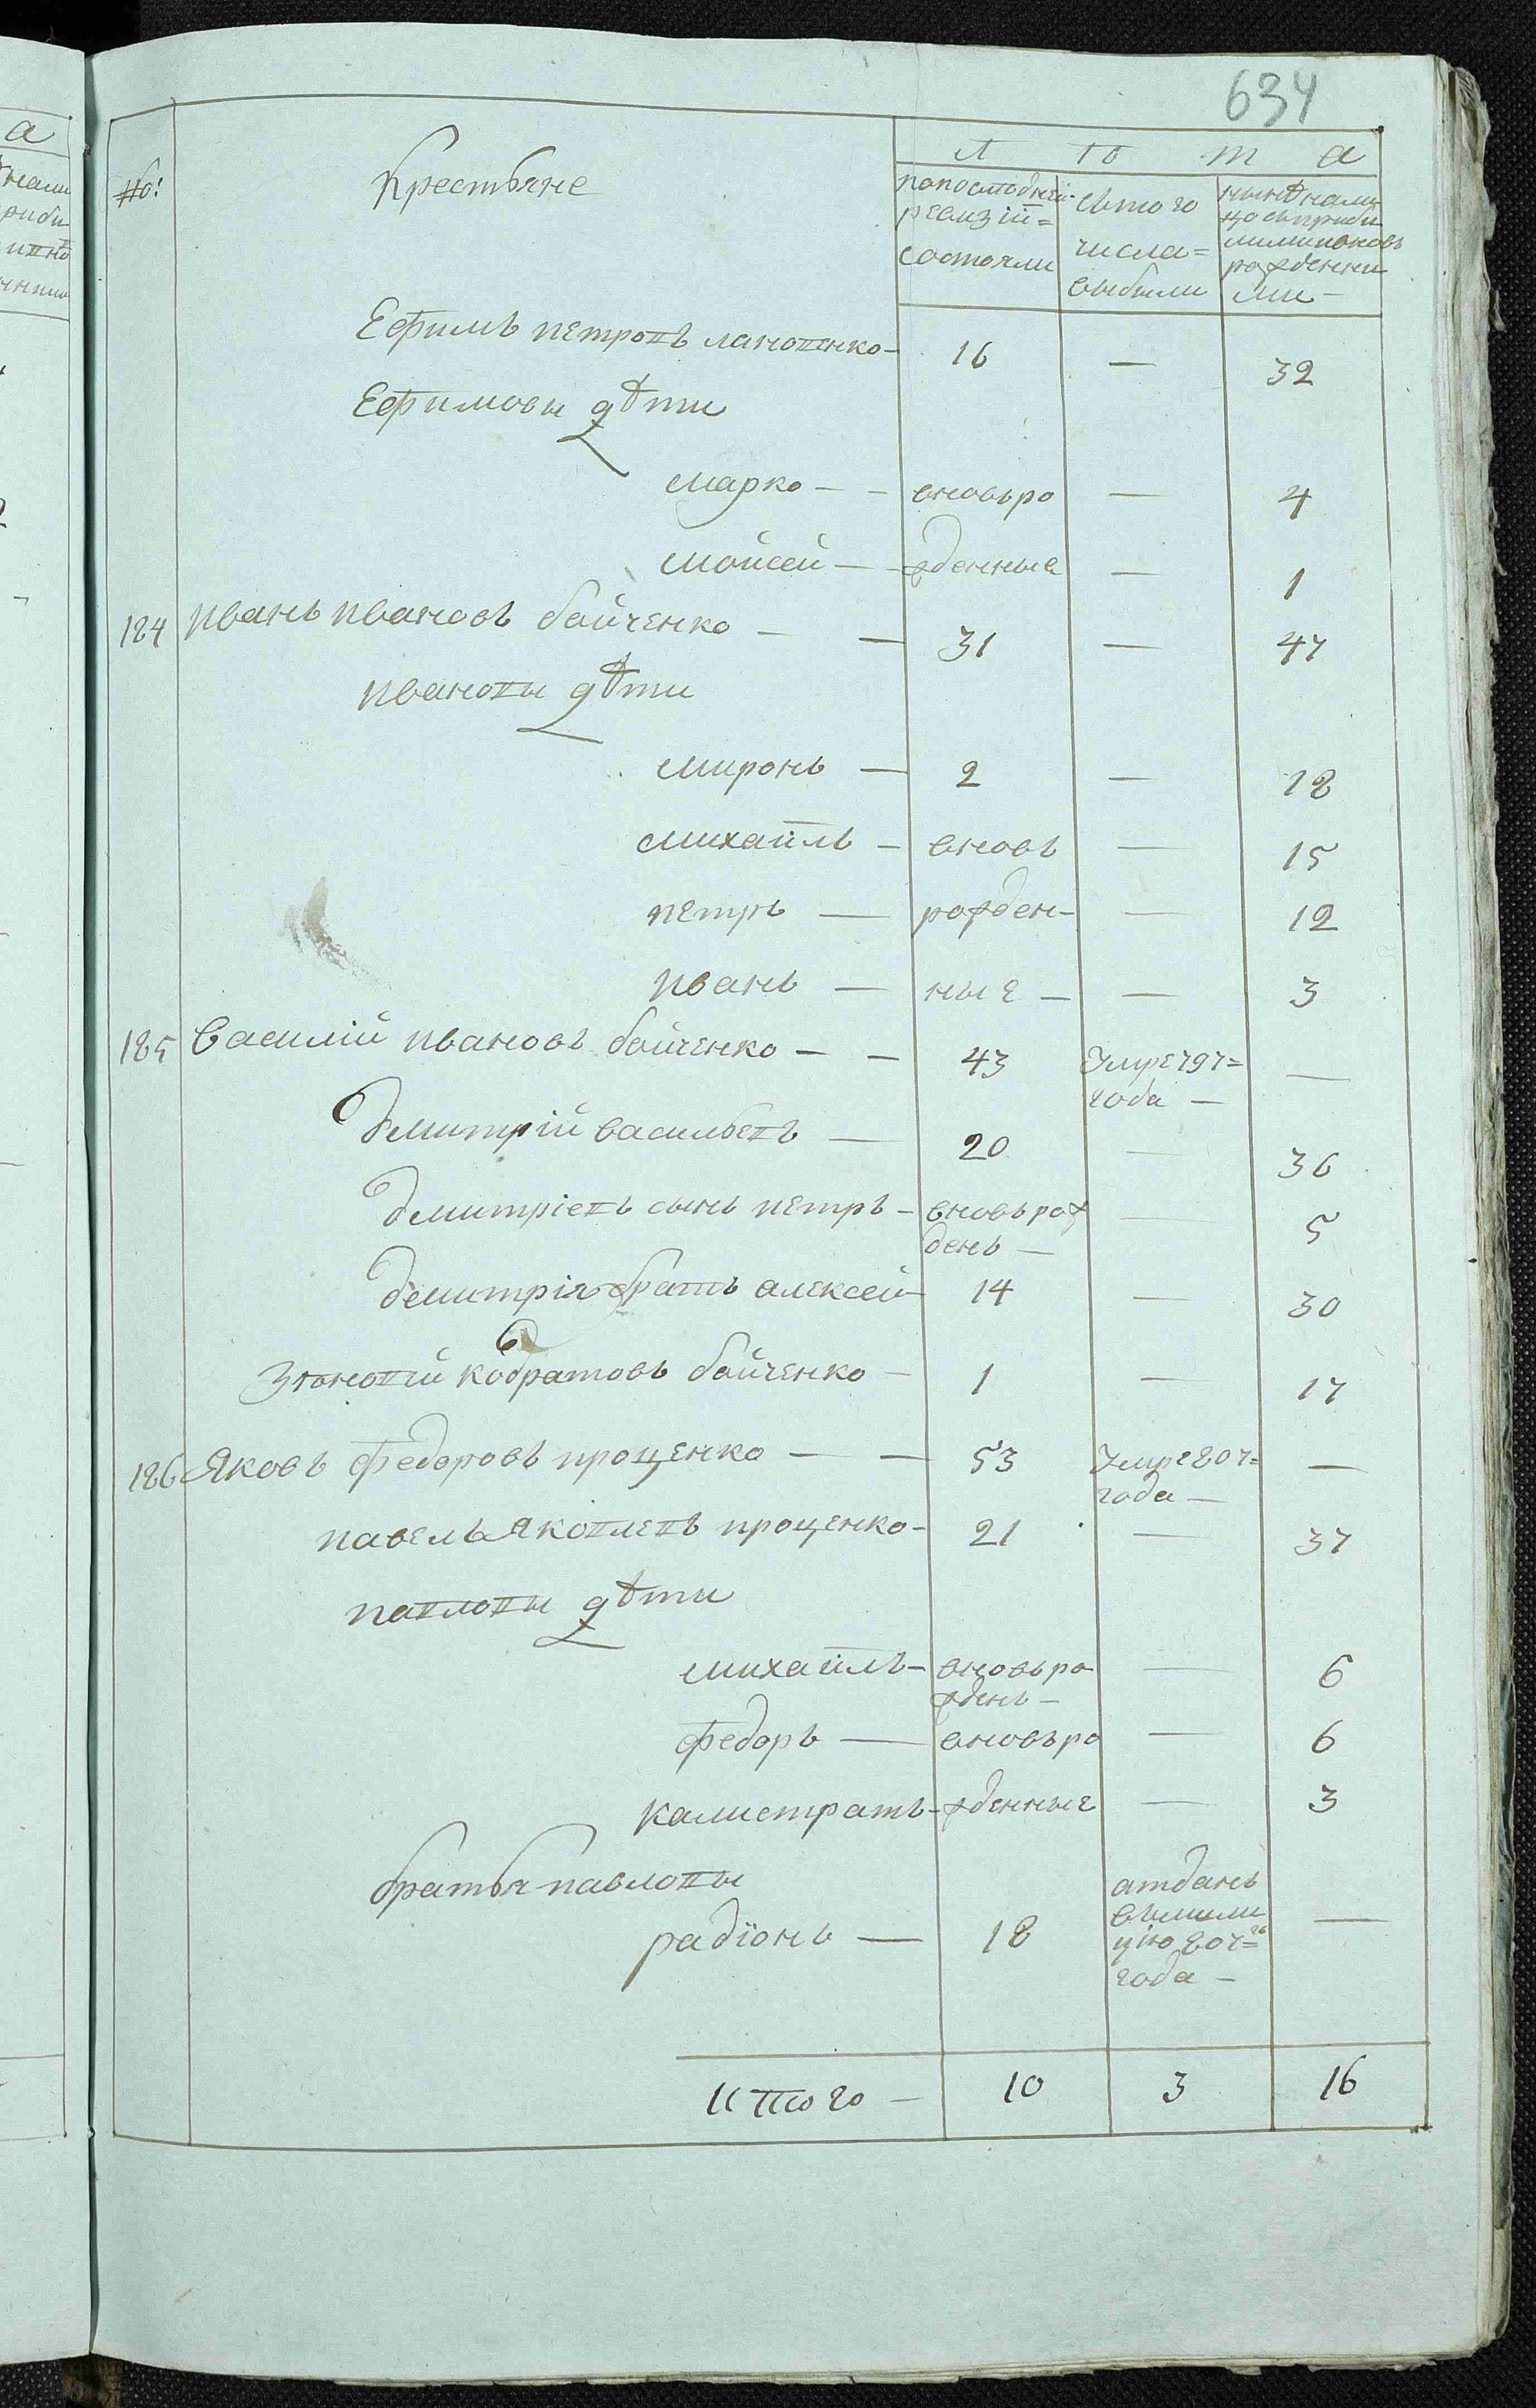 634
№:
Крестьяне
Л ѣ т а
попоследней ревизіи= состояли
сътого числа= выбыли
нынѣ налицо съприбылимиивновь рожденними-
Ефимъ петровъ лановенко- 16 — 32
Ефимовы дѣти
марко - - вновьро — 4
мойсей - - жденные — 1
184 иванъ ивановъ бойченко — — 31 — 47
ивановы дѣти
миронъ — 2 — 18
михайлъ - вновь — 15
петръ — рожден- — 12
иванъ — ные - — 3
185 василій ивановъ бойченко - - 43 умре797= года — —
дмитрій васильевъ — 20 — 36
дмитріевъ сынъ петръ - вновьрож день — — 5
дмитрія братъ алексей- 14 — 30
зѣновій кодратовъ бойченко - 1 — 17
186 Яковъ федоровъ проценко — — 53 умре807= года — —
павелъ яковлевъ проценко- 21 — 37
павловы дѣти
михайлъ- вновьро жденъ - — 6
федоръ — вновьро — 6
калистратъ- жденные — 3
братья павловы
радіонъ — 18 атданъ вымили цію 807= года — —
Итого - 10 3 16